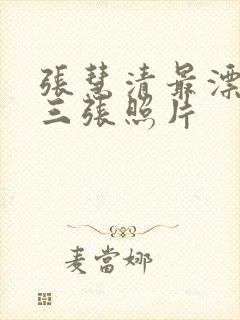 張慧清最漂
三張照片
麦當娜